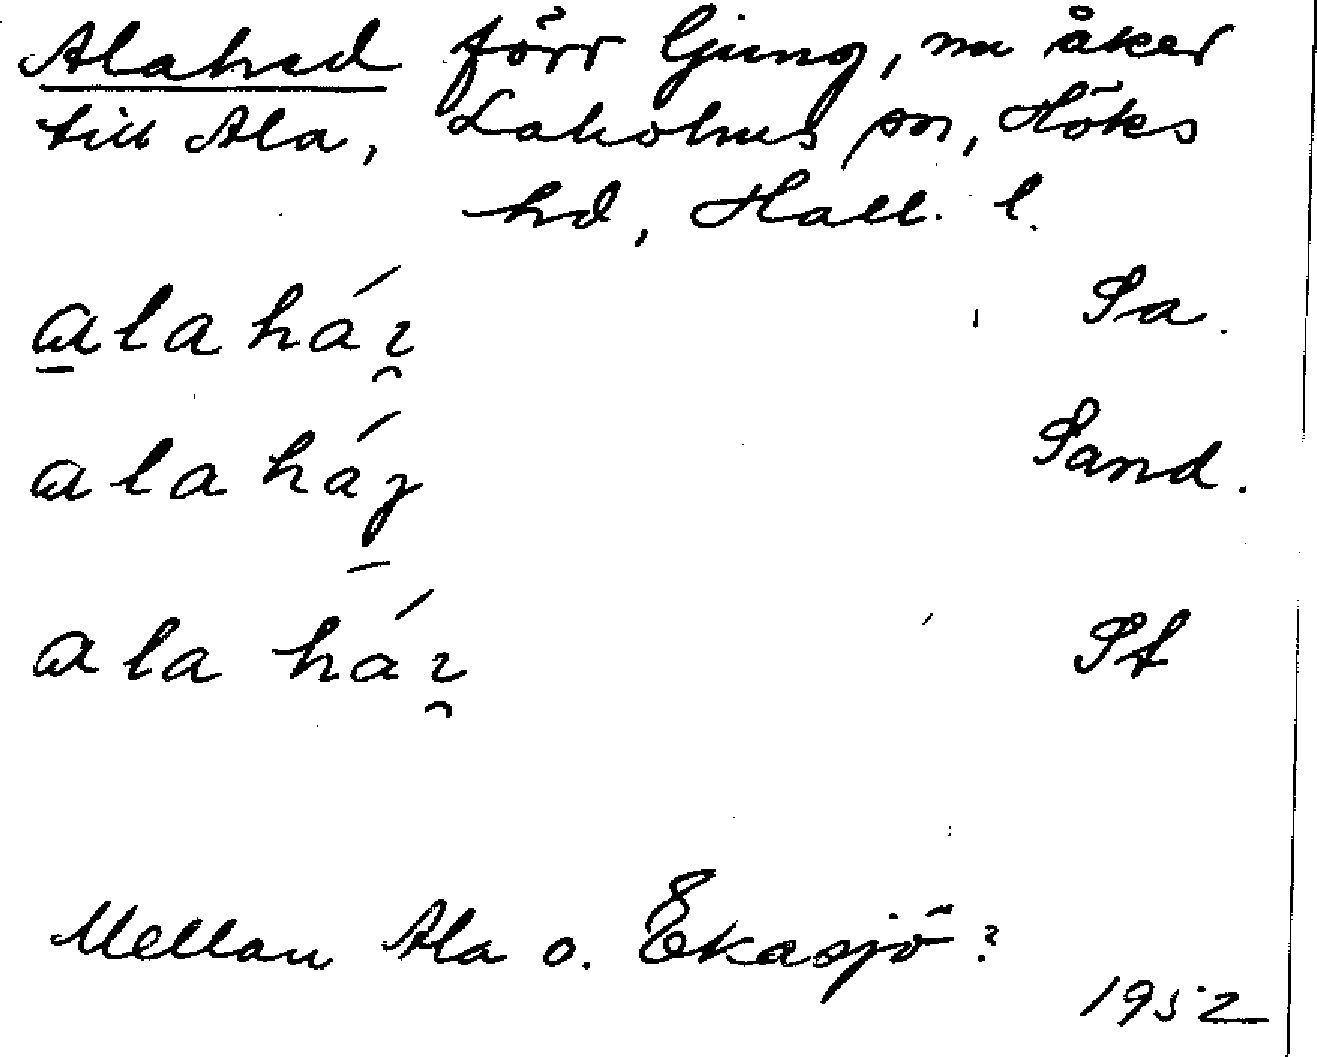 Alahed förr ljung, nu åker
till Ala, Laholms sn, Höks
hd, Hall. l.
alahá Sa.
alahá Sand.
alahá St
Mellan Ala o. Ekasjö?
1952